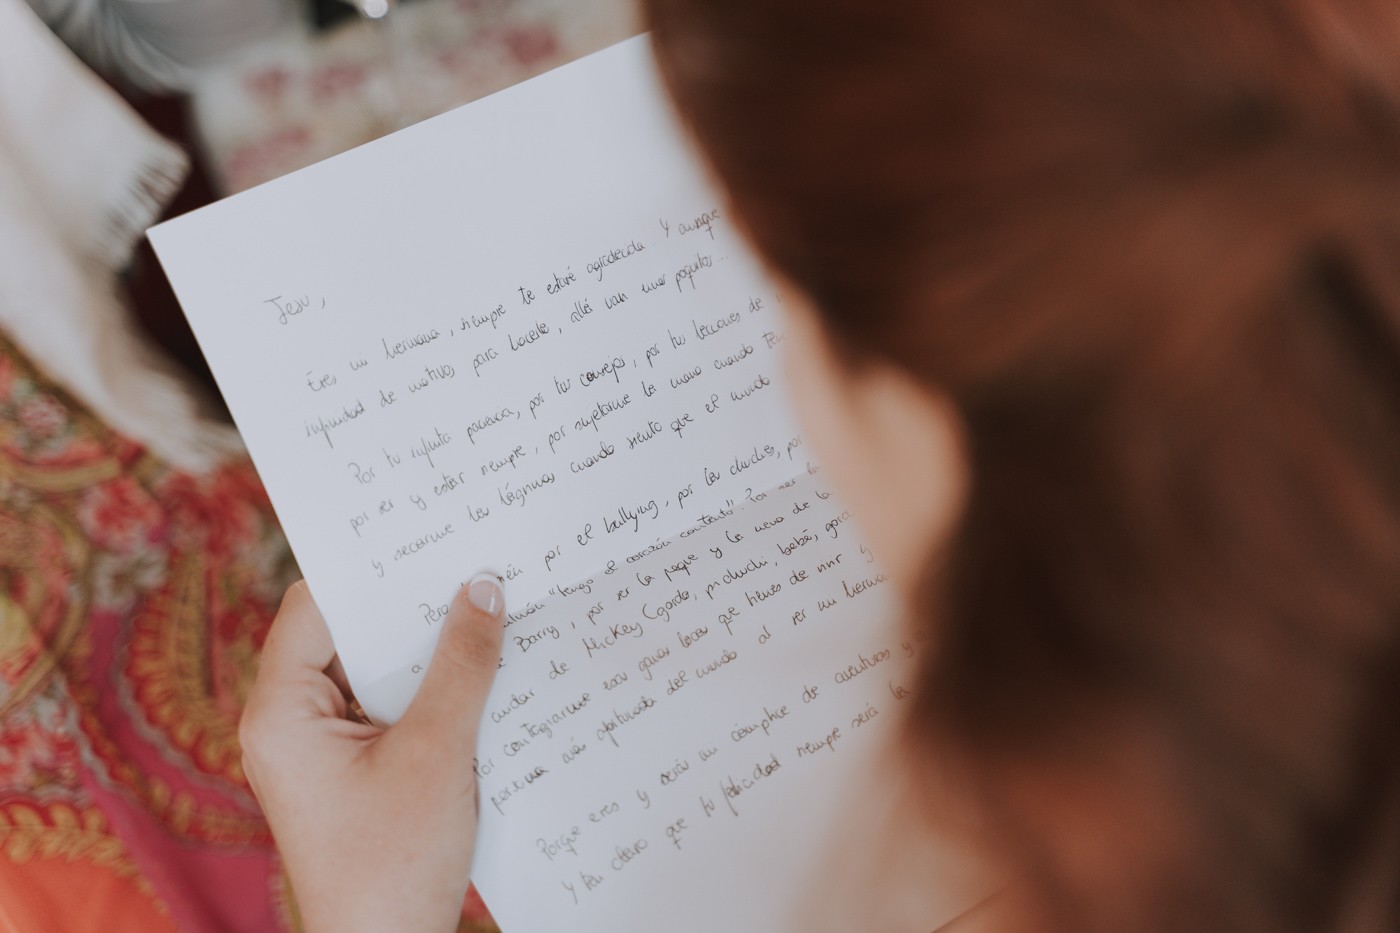 Jesu,
Eres mi hermana, siempre te estaré agradecida. Y aunque
infinidad de motivos para hacerlo, allá van unos poquitos...
Por tu infinita paciencia, por tus consejos, por tus lecciones de
por ser y estar siempre, por sujetarme la mano cuando
y secarme las lágrimas cuando siento que el mundo
Pero por el bullying, por las chuches, por
a "tengo el corazón contento". Por ser
Barry, por ser la peque y la nena de la
cuidar de Mickey (gordo, bebé,
Por contagiarme esas ganas locas que tienes de vivir y
persona más afortunada del mundo al ser mi hermana
Porque eres y serás mi cómplice de aventuras y
Y ten claro que tu felicidad siempre será la